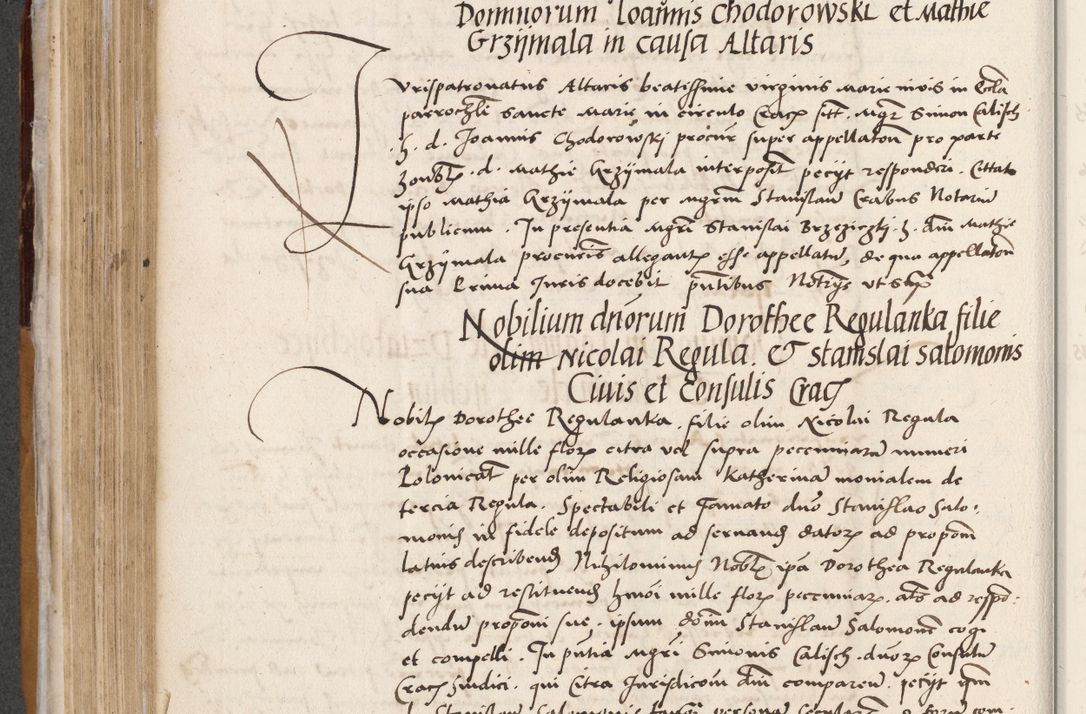 Domnorum Ioannis Chodorowski et Mathie
Grzÿmala in causa Altaris
Iurispatronatus Altaris beatissime virginis Marie nivis in Eccla
parrochli Sancte Marie in circulo Crac sitt. Mgr Simon Calisch
. d. Joannis Chodorowski procur super appellatom pro parte
. d. Mathie Grzÿmala interposit petyt responderi. Cittato
ipso Mathia Grzÿmala per Mgrm Stanislau Crabus Notariu
publicum. In presentia Mgri Stanislai Brzeziczki . Dni Mathie
Grzÿmala allegant esse appellatu, de qua appellatom
sua prima Juris docebit pntibus Notrys ut supra
Nobilium dnorum Dorothee Regulanka filie
olim Nicolai Regula. & Stanislai Salomonis
Civis et Consulis Crac
Nobilis Dorothee Regulanka. filie olim Nicolai Regula
occasione mille flor citra vel supra pecuniaru numeri
Polonicat per olim Religiosam Katherina monialem de
tercia Regula. Spectabili et Famato dno Stanislao Salo-
monis in fidele depositum ad servand dator ad propom
latius describend Nihilominus Nobil ipa Dorothea Regulanka
petyt ad restituend hmoi mille flor pecuniar. ats ad respo-
dendu propom sue. ipsum dom Stanislau Salomone cogi
et compelli. In pntia Mgri Simonis Calisch. duor Consulu
Crac Sindici. qui Citra Jurisdicom dni comparen. petyt
Stanislau Salomonis persona